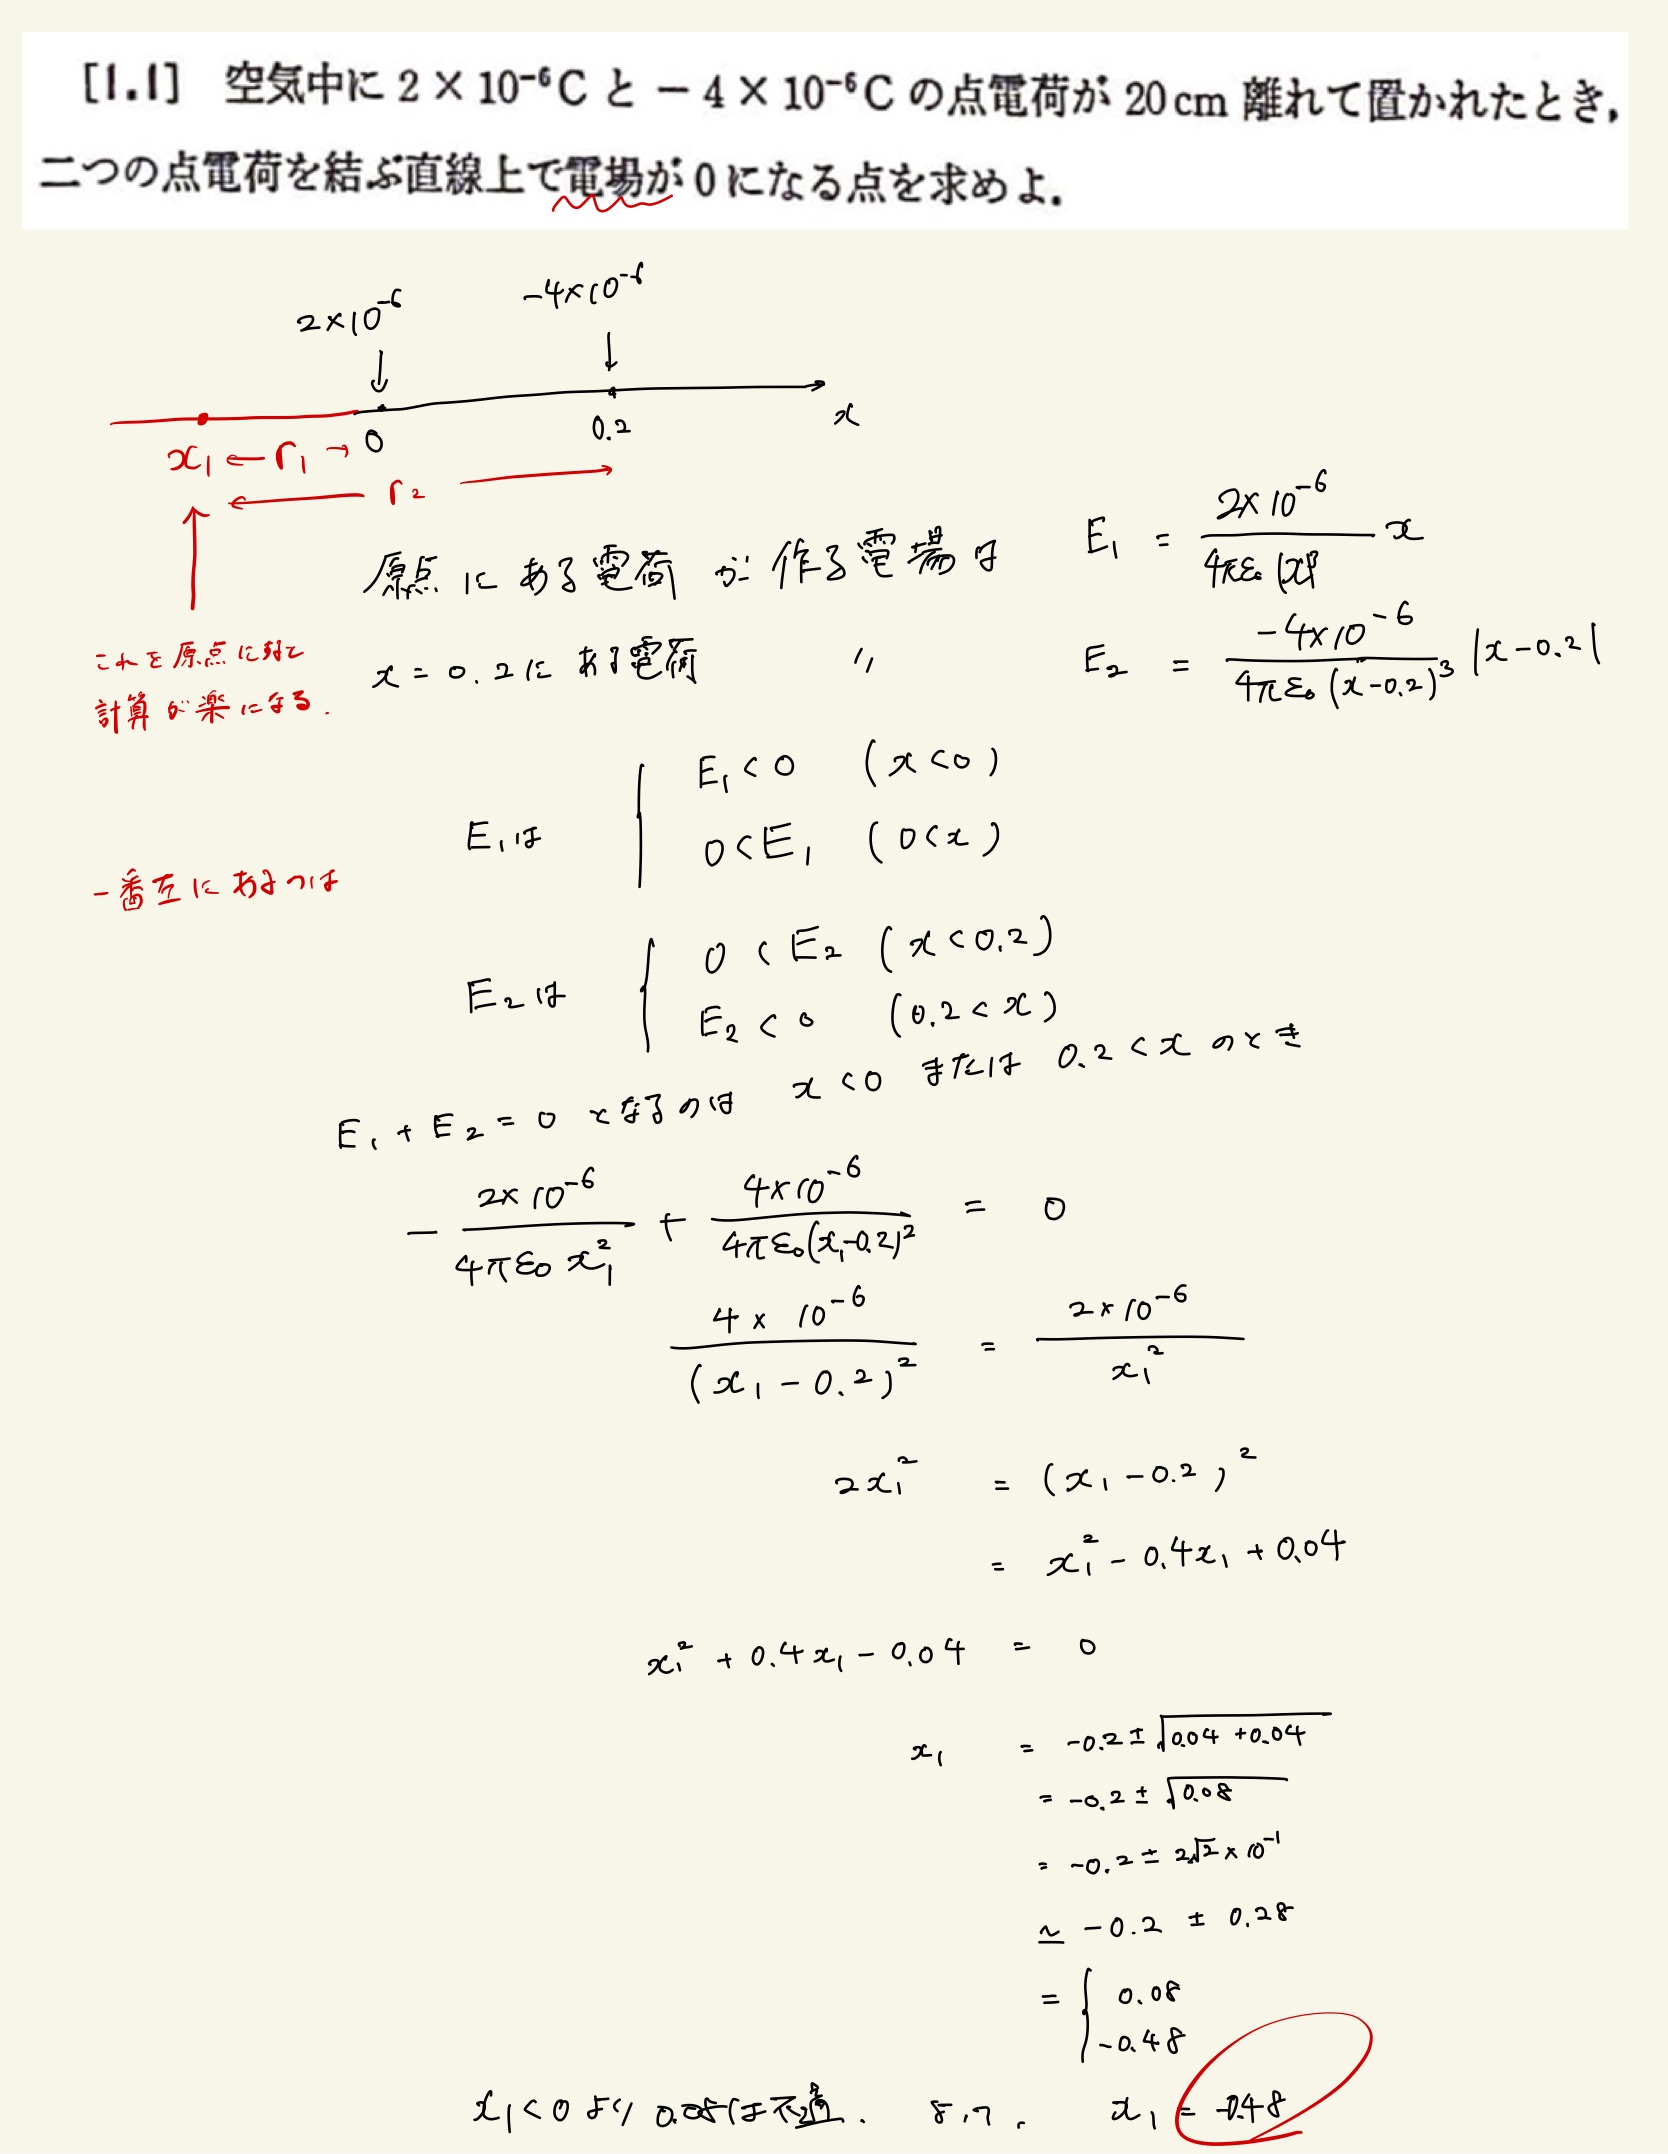 [1.1] 空気中に 2 × 10⁻⁶C と − 4 × 10⁻⁶C の点電荷が 20 cm 離れて置かれたとき,
二つの点電荷を結ぶ直線上で電場が 0 になる点を求めよ.
2×10⁻⁶
-4×10⁻⁶
0
0.2
x
x₁ ← r₁ →
r₂
原点にある電荷が作る電場は E₁ = 2×10⁻⁶ / 4πε₀|x|³ x
これを原点に
計算が楽になる.
x = 0.2 にある電荷 〃 E₂ = -4×10⁻⁶ / 4πε₀(x-0.2)³ |x-0.2|
E₁は { E₁<0 (x<0)
0<E₁ (0<x)
一番左にあるのは
E₂は { 0<E₂ (x<0.2)
E₂<0 (0.2<x)
E₁+E₂=0 となるのは x<0 または 0.2<x のとき
- 2×10⁻⁶ / 4πε₀x₁² + 4×10⁻⁶ / 4πε₀(x₁-0.2)² = 0
4×10⁻⁶ / (x₁-0.2)² = 2×10⁻⁶ / x₁²
2x₁² = (x₁-0.2)²
= x₁² - 0.4x₁ + 0.04
x₁² + 0.4x₁ - 0.04 = 0
x₁ = -0.2 ± √0.04+0.04
= -0.2 ± √0.08
= -0.2 ± 2√2×10⁻¹
≃ -0.2 ± 0.28
= { 0.08
-0.48
x₁<0 より 0.08は不適. よって, x₁ = -0.48